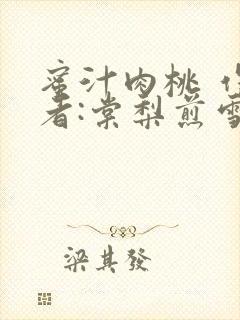 蜜汁肉桃 作
者:棠梨煎雪
梁其發